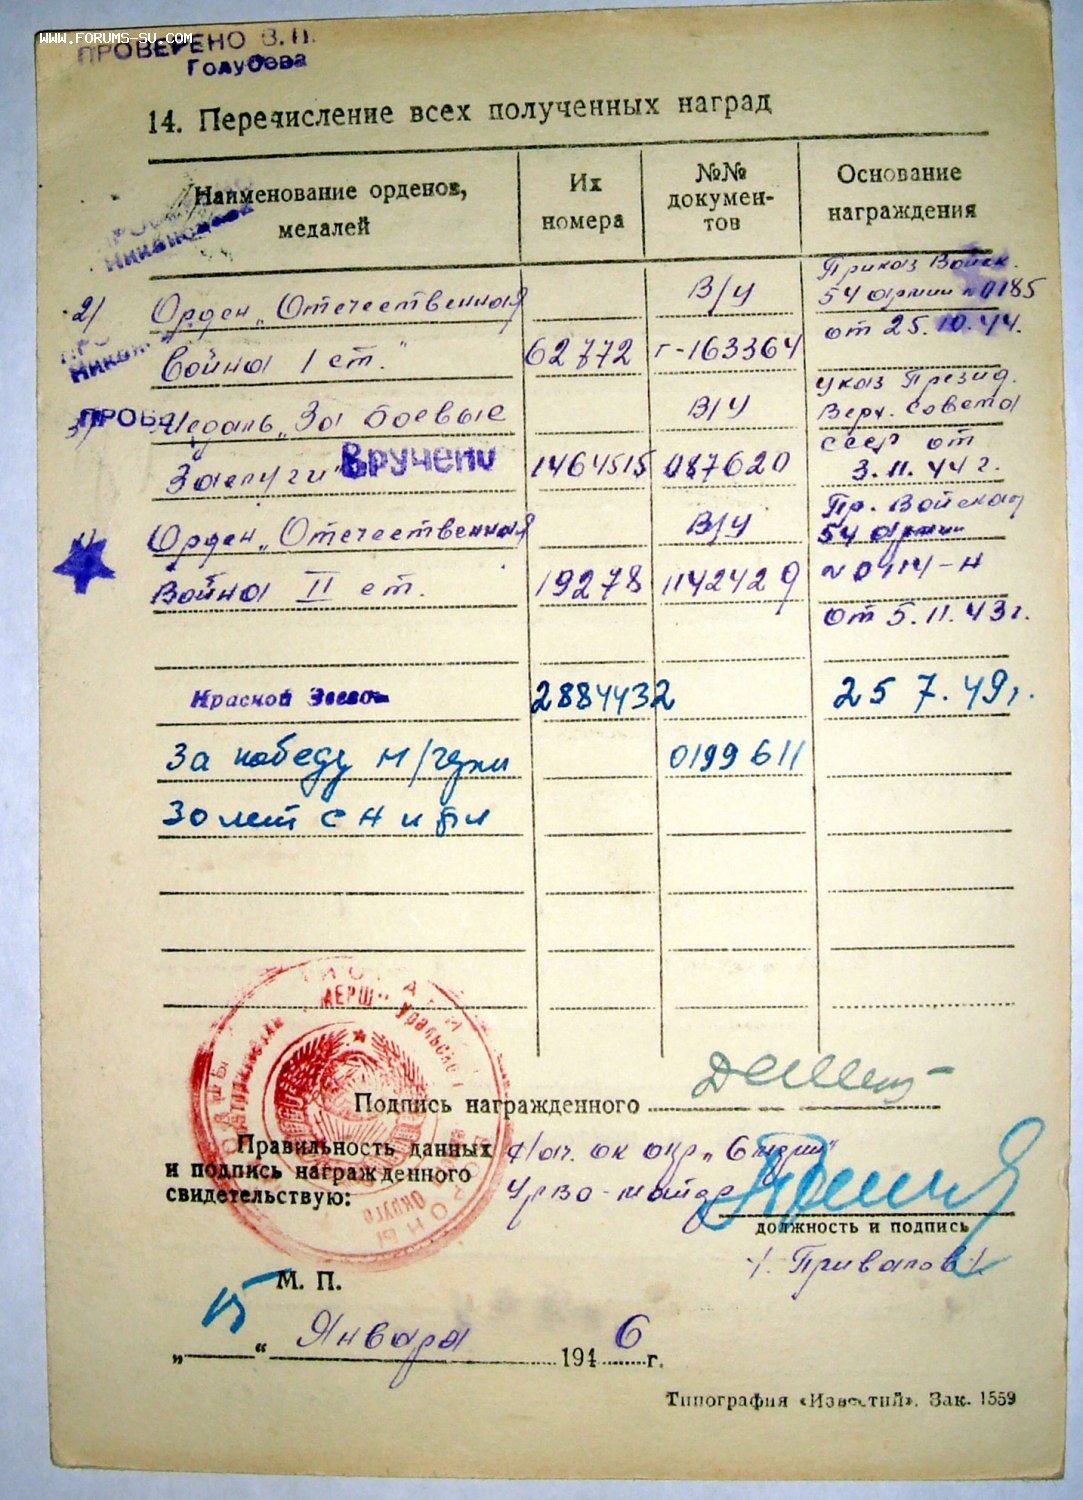 www.forums-su.com
ПРОВЕРЕНО В. П.
Голубева
14. Перечисление всех полученных наград
Наименование орденов, медалей
Их номера
№№ документов
Основание награждения
2) Орден „Отечественная В/У Приказ Войск. 54 армии №0185
Война I ст." 62772 г-163364 от 25.10.44.
3) Медаль „За боевые В/У Указ Презид. Верх. Совета
Заслуги" Вручено 1464515 087620 СССР от 3.11.44г.
Орден „Отечественная В/У Пр. Войскам 54 армии
Война II ст. 19278 1142429 -н
от 5.11.43г.
Красной 2884432 25 7.49г.
За победу н/герм 0199611
30 лет
Подпись награжденного
Правильность данных и подпись награжденного свидетельствую:
УрВО - майор
должность и подпись
/Привалов/
М. П.
„15“ Января 1946 г.
Типография «Известий». Зак. 1559